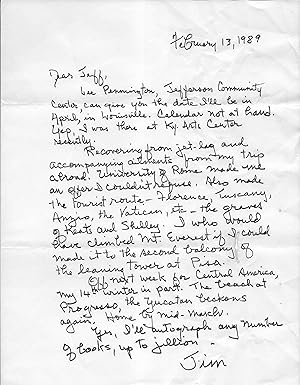 February 13, 1989
Dear Jeff,
Lee Pennington, Jefferson Community
Center, can give you the date I'll be in
April, in Louisville. Calendar not at hand.
Yep, I was there at Ky. Arts Center
recently.
Recovering from jet-leg and
accompanying ailments from my trip
abroad. University of Rome made me
an offer I couldn't refuse. Also made
the tourist route - Florence, Tuscany,
Anzio, the Vatican, etc - the graves
of Keats and Shelley. I who would
have climbed Mt. Everest if I could
made it to the second balcony of
the leaning tower at Pisa.
Off next week for Central America,
my 14th winter in part. The beach at
Progresso, the Yucatan beckons
again. Home by mid-March.
Yes, I'll autograph any number
of books, up to jillion.
Jim